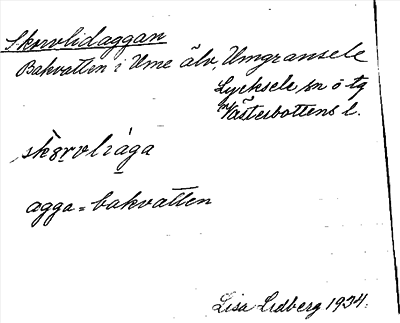 Skorvlidaggan
Bakvatten i Ume älv, Umgransele
Lycksele sn o tg
Västerbottens l.
agga = bakvatten
Lisa Lidberg 1934.